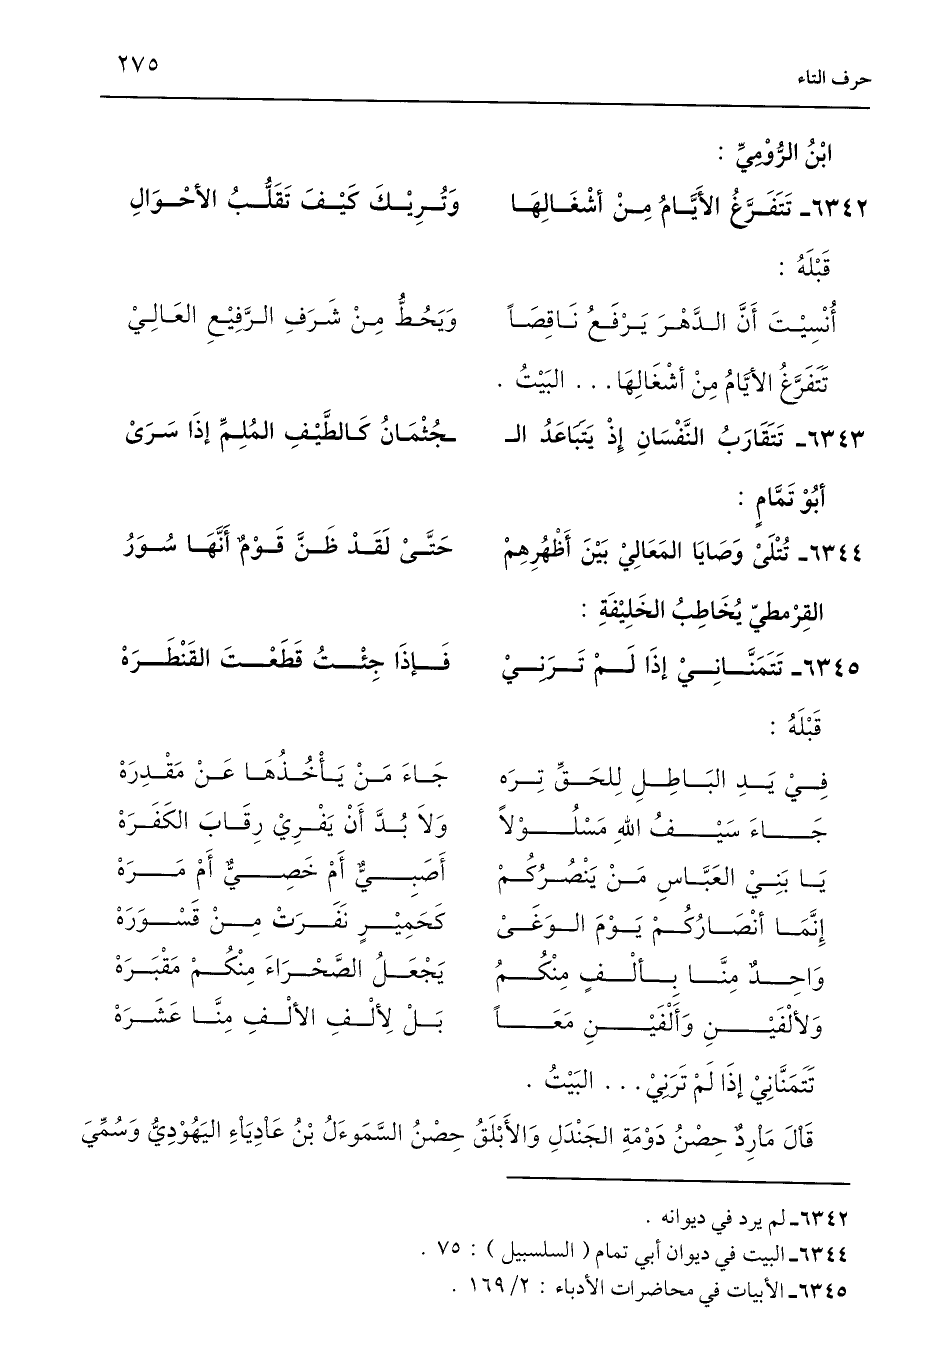 حرف التاء ٢٧٥
ابْنُ الرُّوْمِيِّ :
٦٣٤٢ـ تَتَفَرَّغُ الأَيَّامُ مِنْ أشْغَالِهَا وَتُرِيْكَ كَيْفَ تَقَلُّبُ الأحْوَالِ
قَبْلَهُ :
أُنْسِيْتَ أَنَّ الدَّهْرَ يَرْفَعُ نَاقِصَاً وَيَحُطُّ مِنْ شَرَفِ الرَّفِيْعِ العَالِيْ
تَتَفَرَّغُ الأيَّامُ مِنْ أشْغَالِهَا . . . البَيْتُ .
٦٣٤٣ـ تَتَقَارَبُ النَّفْسَانِ إِذْ يَتَبَاعَدُ الـ ـجُثْمَانُ كَالطَّيْفِ المُلِمِّ إذَا سَرَىْ
أبُوْ تَمَّامٍ :
٦٣٤٤ـ تُتْلَىْ وَصَايَا المَعَالِيْ بَيْنَ أَظْهُرِهِمْ حَتَّىْ لَقَدْ ظَنَّ قَوْمٌ أنَّهَا سُوَرُ
القِرْمطيّ يُخَاطِبُ الخَلِيْفَةِ :
٦٣٤٥ـ تَتَمَنَّانِيْ إذَا لَمْ تَرَنِيْ فَإذَا جِئْتُ قَطَعْتَ القَنْطَرَهْ
قَبْلَهُ :
فِيْ يَدِ البَاطِلِ لِلحَقِّ تِرَه جَاءَ مَنْ يَأْخُذُهَا عَنْ مَقْدِرَهْ
جَاءَ سَيْفُ اللهِ مَسْلُوْلاً وَلاَ بُدَّ أَنْ يَفْرِيْ رِقَابَ الكَفَرَهْ
يَا بَنِيْ العَبَّاسِ مَنْ يَنْصُرُكُمْ أصَبِيٌّ أمْ خَصِيٌّ أمْ مَرَهْ
إنَّمَا أنْصَارُكُمْ يَوْمَ الوَغَىْ كَحَمِيْرٍ نَفَرَتْ مِنْ قَسْوَرَهْ
وَاحِدٌ مِنَّا بِألْفٍ مِنْكُمُ يَجْعَلُ الصَّحْرَاءَ مِنْكُمْ مَقْبَرَهْ
وَلألْفَيْنِ وَأَلْفَيْنِ مَعَاً بَلْ لِألْفِ الألْفِ مِنَّا عَشَرَهْ
تَتَمَنَّانِيْ إذَا لَمْ تَرَنِيْ . . . البَيْتُ .
قَاْلَ مَاْرِدٌ حِصْنُ دَوْمَةِ الجَنْدَلِ وَالأَبْلَقُ حِصْنُ السَّمُوءَلُ بْنُ عَاْدِيَاْءِ اليَهُوْدِيُّ وَسُمِّيَ
٦٣٤٢ـ لم يرد في ديوانه .
٦٣٤٤ـ البيت في ديوان أبي تمام ( السلسبيل ) : ٧٥ .
٦٣٤٥ـ الأبيات في محاضرات الأدباء : ٢/ ١٦٩ .